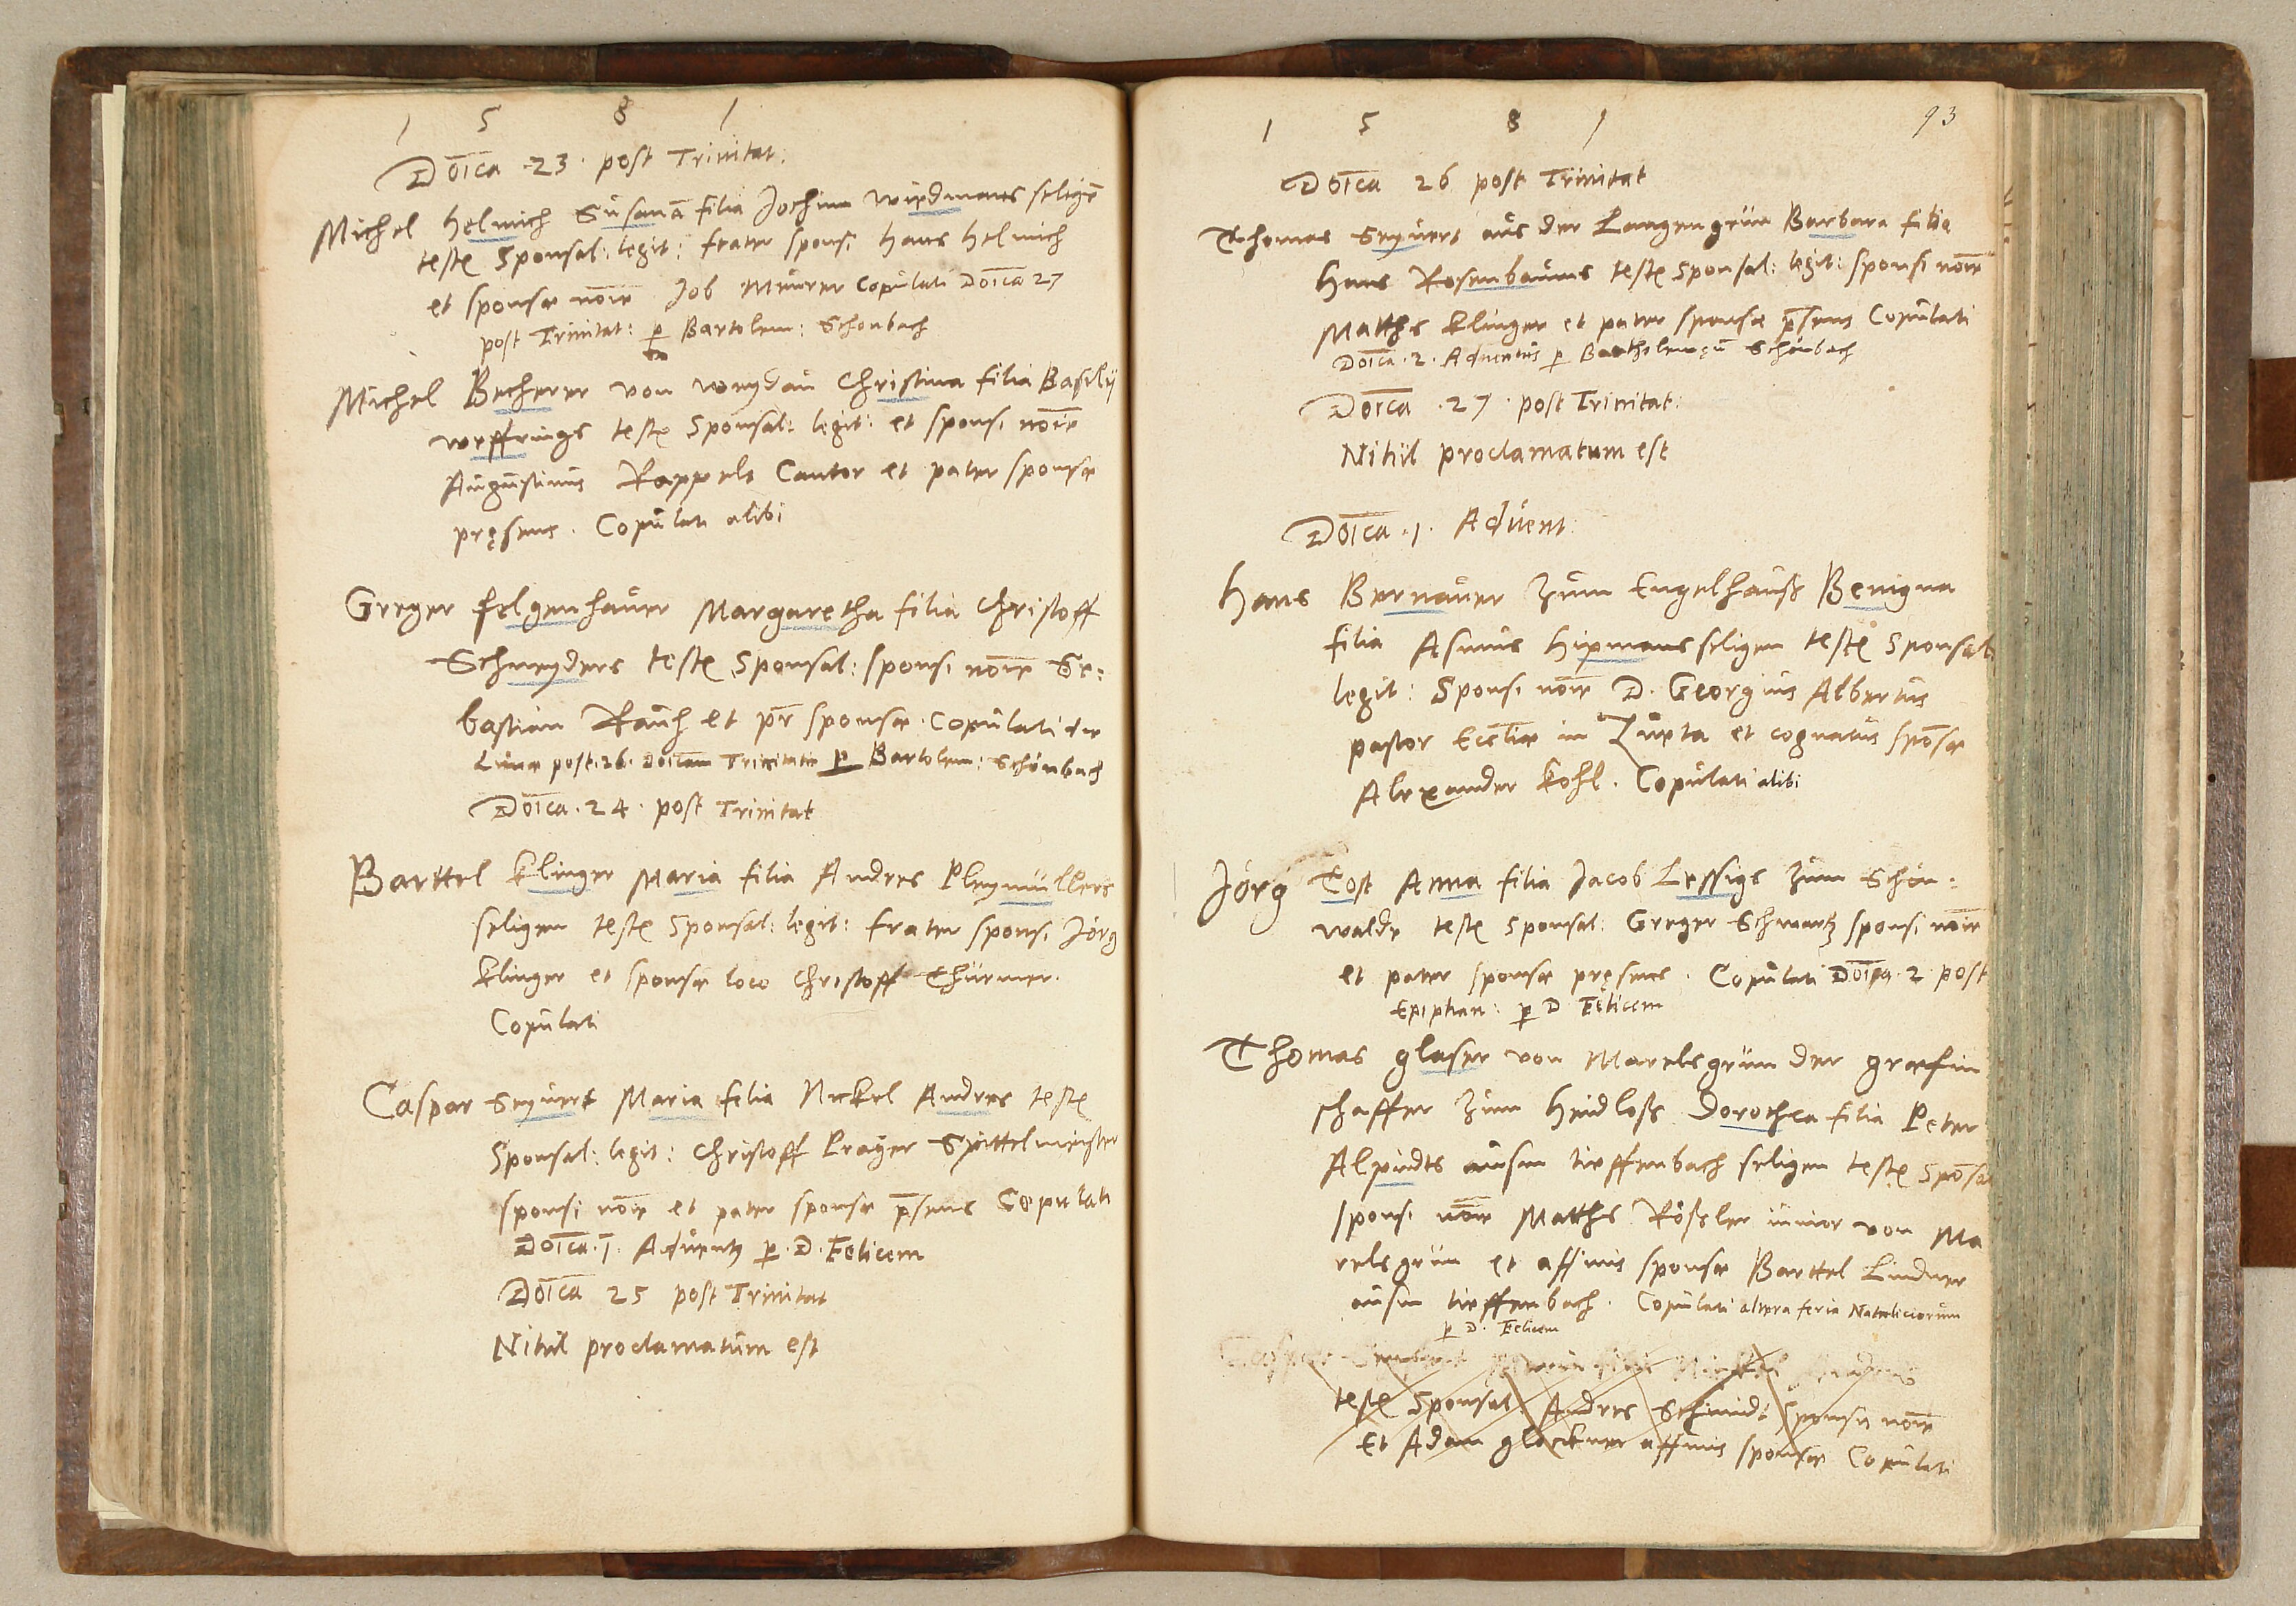 1 5 8 1
Do͞ica 23 post Trinitat:
Michel Helmich Susana͞ filia Jochim Wiedmans selige͞
teste Sponsal: legit: frater sponsi Hans Helmich
et sponsæ no͞ie Job Meurer Copulati Do͞ica 27
post Trinitat: p Bartolem: Schonbach
Michel Becherer von Weydau Christina filia Basilij
Weffrings teste Sponsal: legit: et sponsi no͞ie
Augustinus Rappelt Cantor et pater sponsæ
pręsens. Copulati alibi
Greger Felgenhauer Margaretha filia Christoff
Schneyders teste Sponsal: sponsi no͞ie Se:
bastian Rauh et p͞r sponsæ. Copulati die
Lunæ post 26 Do͞icam Trinitatis p Bartolem: Schönbach
Do͞ica. 24. post Trinitat
Barttel Klinger Maria filia Andres Pleymüllers
seligen teste Sponsal: legit: frater sponsi Jörg
Klinger et sponsæ loco Christoff Thürmer.
Copulati
Caspar Seyvert Maria filia Nickel Andres teste
Sponsal: legit: Christoff Prager Spittelmeister
sponsi no͞ie et pater sponsæ p͞sens Copulati
Do͞ica. 1. Adventg p. D. Felicem
Do͞ica 25 post Trinitat
Nihil proclamatum est
1 5 8 1
93
Do͞ica 26 post Trinitat
Thomas Seyvert aus der Langengrün Barbara filia
Hans Rosenbaums teste Sponsal: legit: sponsi no͞ie
Matths Klinger et pater sponsæ p͞sens Copulati
Do͞ica. 2. Adventus p Bartholemęu͞ Schönbach
Do͞ica. 27. post Trinitat:
Nihil proclamatum est
Do͞ica. 1. Advent:
Hans Bernauer zum Engelhauß Benigna
filia Asmus Hipmans seligen teste Sponsal:
legit: Sponsi no͞ie D. Georgius Albertus
pastor Eccl͞iæ in Zuetta et cognatus spo͞sæ
Alexander Kohl. Copulati alibi
Jörg Tost Anna filia Jacob Lessigs zum Schön:
walde teste Sponsal: Greger Schwartz sponsi no͞ie
et pater sponsæ pręsens. Copulati Do͞ica. 2. post
Epiphan: p D Felicem
Thomas Glaser von Marelsgrün der græfin
schaffer zum Heidloß Dorothea filia Peter
Alpirdts ausm tieffenbach seligen teste Spo͞sal
sponsi no͞ie Matths Rößler iunior von Ma
relsgrün et affinis sponsæ Barttel Lindner
ausm tieffenbach. Copulati altera feria Nataliciorum
p D. Felicem
Caspar Seyvert Maria filia Nickel Andres
teste Sponsal: Andres Schmidt Sponsi no͞ie
Et Adam Glöckner affinis sponsæ Copulati